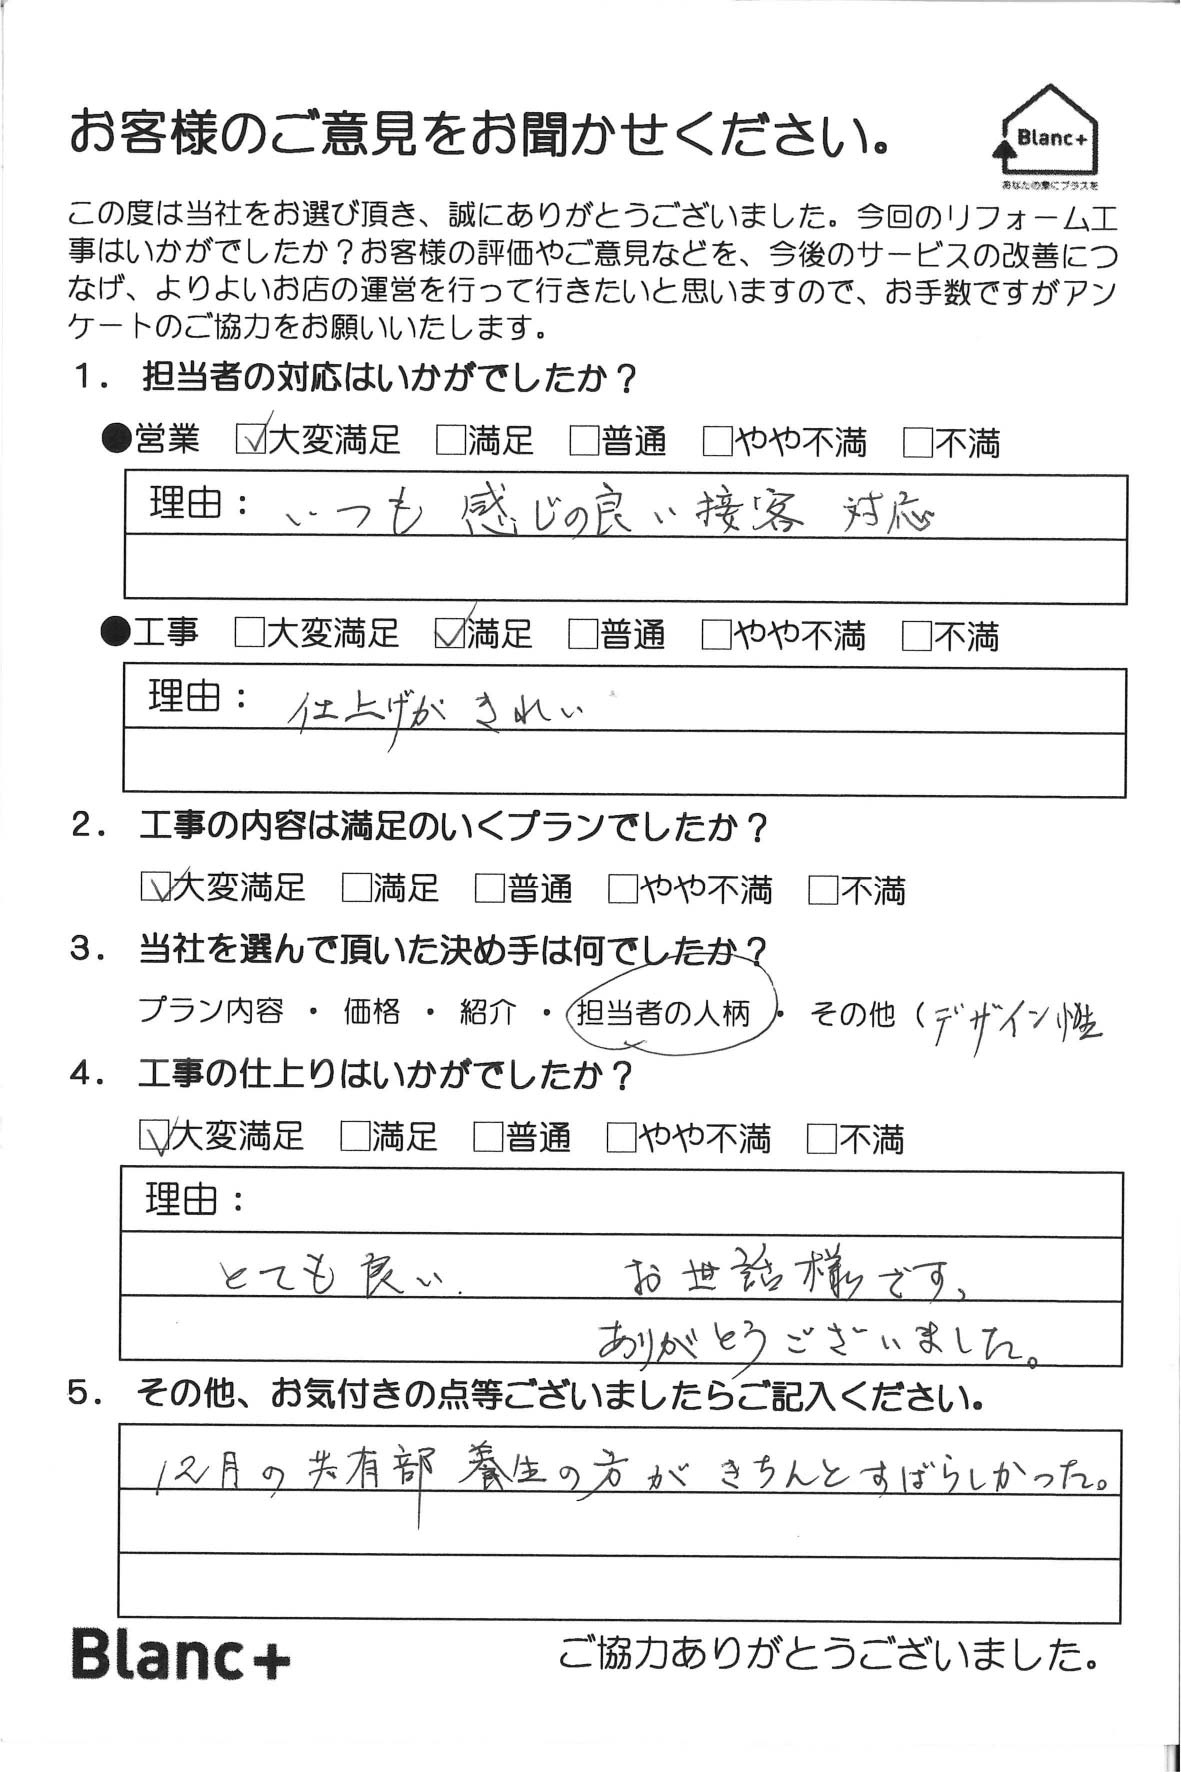 お客様のご意見をお聞かせください。
Blanc+
あなたの家にプラスを
この度は当社をお選び頂き、誠にありがとうございました。今回のリフォーム工
事はいかがでしたか？お客様の評価やご意見などを、今後のサービスの改善につ
なげ、よりよいお店の運営を行って行きたいと思いますので、お手数ですがアン
ケートのご協力をお願いいたします。
１．担当者の対応はいかがでしたか？
●営業 ☑大変満足 □満足 □普通 □やや不満 □不満
理由：いつも感じの良い接客 対応
●工事 □大変満足 ☑満足 □普通 □やや不満 □不満
理由：仕上げがきれい
２．工事の内容は満足のいくプランでしたか？
☑大変満足 □満足 □普通 □やや不満 □不満
３．当社を選んで頂いた決め手は何でしたか？
プラン内容 ・ 価格 ・ 紹介 ・ 担当者の人柄 ・ その他（デザイン性
４．工事の仕上りはいかがでしたか？
☑大変満足 □満足 □普通 □やや不満 □不満
理由：
とても良い. お世話様です、
ありがとうございました。
５．その他、お気付きの点等ございましたらご記入ください。
12月の共有部養生の方がきちんとすばらしかった。
Blanc+ ご協力ありがとうございました。